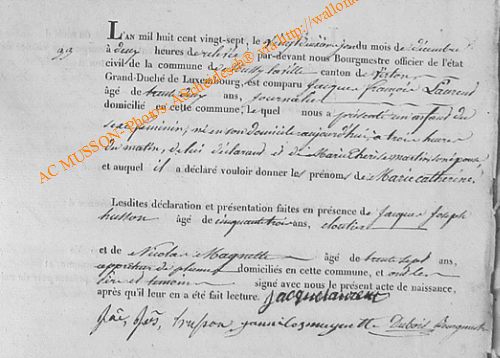 L'AN mil huit cent vingt-sept, le vingtdeuxieme jour du mois de décembre
à deux heures de relevée par-devant nous Bourgmestre officier de l'état
civil de la commune de Mussy la ville canton de Virton
Grand-Duché de Luxembourg, est comparu Jacque françois Laurent
âgé de trente deux ans, journalier
domicilié en cette commune, Lequel nous a présenté un enfant du
sexe féminin, né en son domicile aujourd'hui à trois heures
du matin, de lui déclarant et de Marie therese martin son épouse
et auquel il a déclaré vouloir donner les prénoms de Marie catherine.
Lesdites déclaration et présentation faites en présence de Jacque Joseph
husson âgé de cinquante trois ans, cloutier
et de Nicolas Magnette âgé de trente sept ans
domiciliés en cette commune, et ont les
témoins signé avec nous le présent acte de naissance,
après qu'il leur en a été fait lecture. Jacque laurent
husson Dubois Bourgmestre
93
AC MUSSON- Photos ASchoedesch@ via http://wallonia